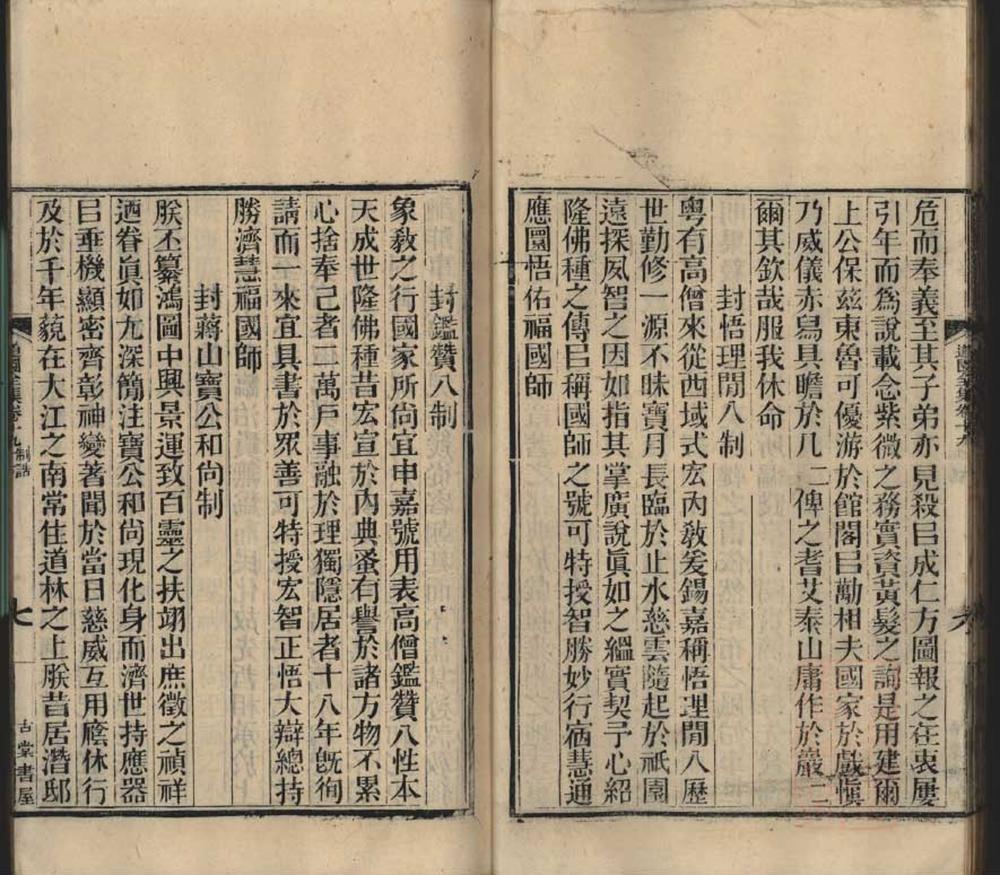 危而奉義至其子弟亦見殺㠯成仁方圖報之在衷屢
引年而爲說載念紫微之務實資黃髮之詢是用建爾
上公保玆東魯可優游於館閣㠯勵相夫國家於戲愼
乃威儀赤舃具瞻於几二俾之耆艾泰山庸作於巖二
爾其欽哉服我休命
封悟理閒八制
粵有高僧來從西域式宏內敎爰錫嘉稱悟理閒八歷
世勤修一源不昧寶月長臨於止水慈雲隨起於祇園
遠探夙智之因如指其掌廣說眞如之緼實契予心紹
隆佛種之傳㠯稱國師之號可特授智勝妙行宿慧通
應圓悟佑福國師
封鑑贊八制
象敎之行國家所尚宜申嘉號用表高僧鑑贊八性本
天成世隆佛種昔宏宣於內典蚤有譽於諸方物不累
心捨奉己者二萬戶事融於理獨隱居者十八年旣徇
請而一來宜具書於眾善可特授宏智正悟大辯總持
勝濟慧福國師
封蔣山寶公和尚制
朕丕纂鴻圖中興景運致百靈之扶翊出庶徵之禎祥
迺眷眞如尢深簡注寶公和尚現化身而濟世持應器
㠯垂機顯密齊彰神變著聞於當日慈威互用廕休行
及於千年藐在大江之南常住道林之上朕昔居潛邸
制誥
七
古棠書屋